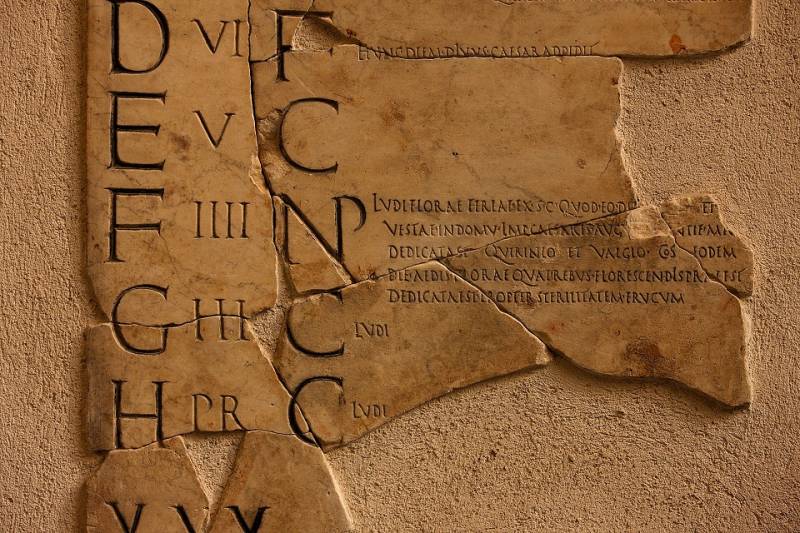 D VI F
HVNC DIEM DIVVS CAESAR ADDIDIT
E V C
F IIII NP LVDI FLORAE FERIAE EX S·C·QVOD EO D ET
VESTAE IN DOMV·IMP·CAESARIS AVG NTIF·MA
DEDICATAST QVIRINIO ET VALGIO·COS EODEM
DIE AEDIS FLORAE QVAE REBVS FLORESCENDIS PRAEEST
DEDICATA EST PROPTER STERILITATEM FRVGVM
G III C LVDI
H PR C LVDI
XXX